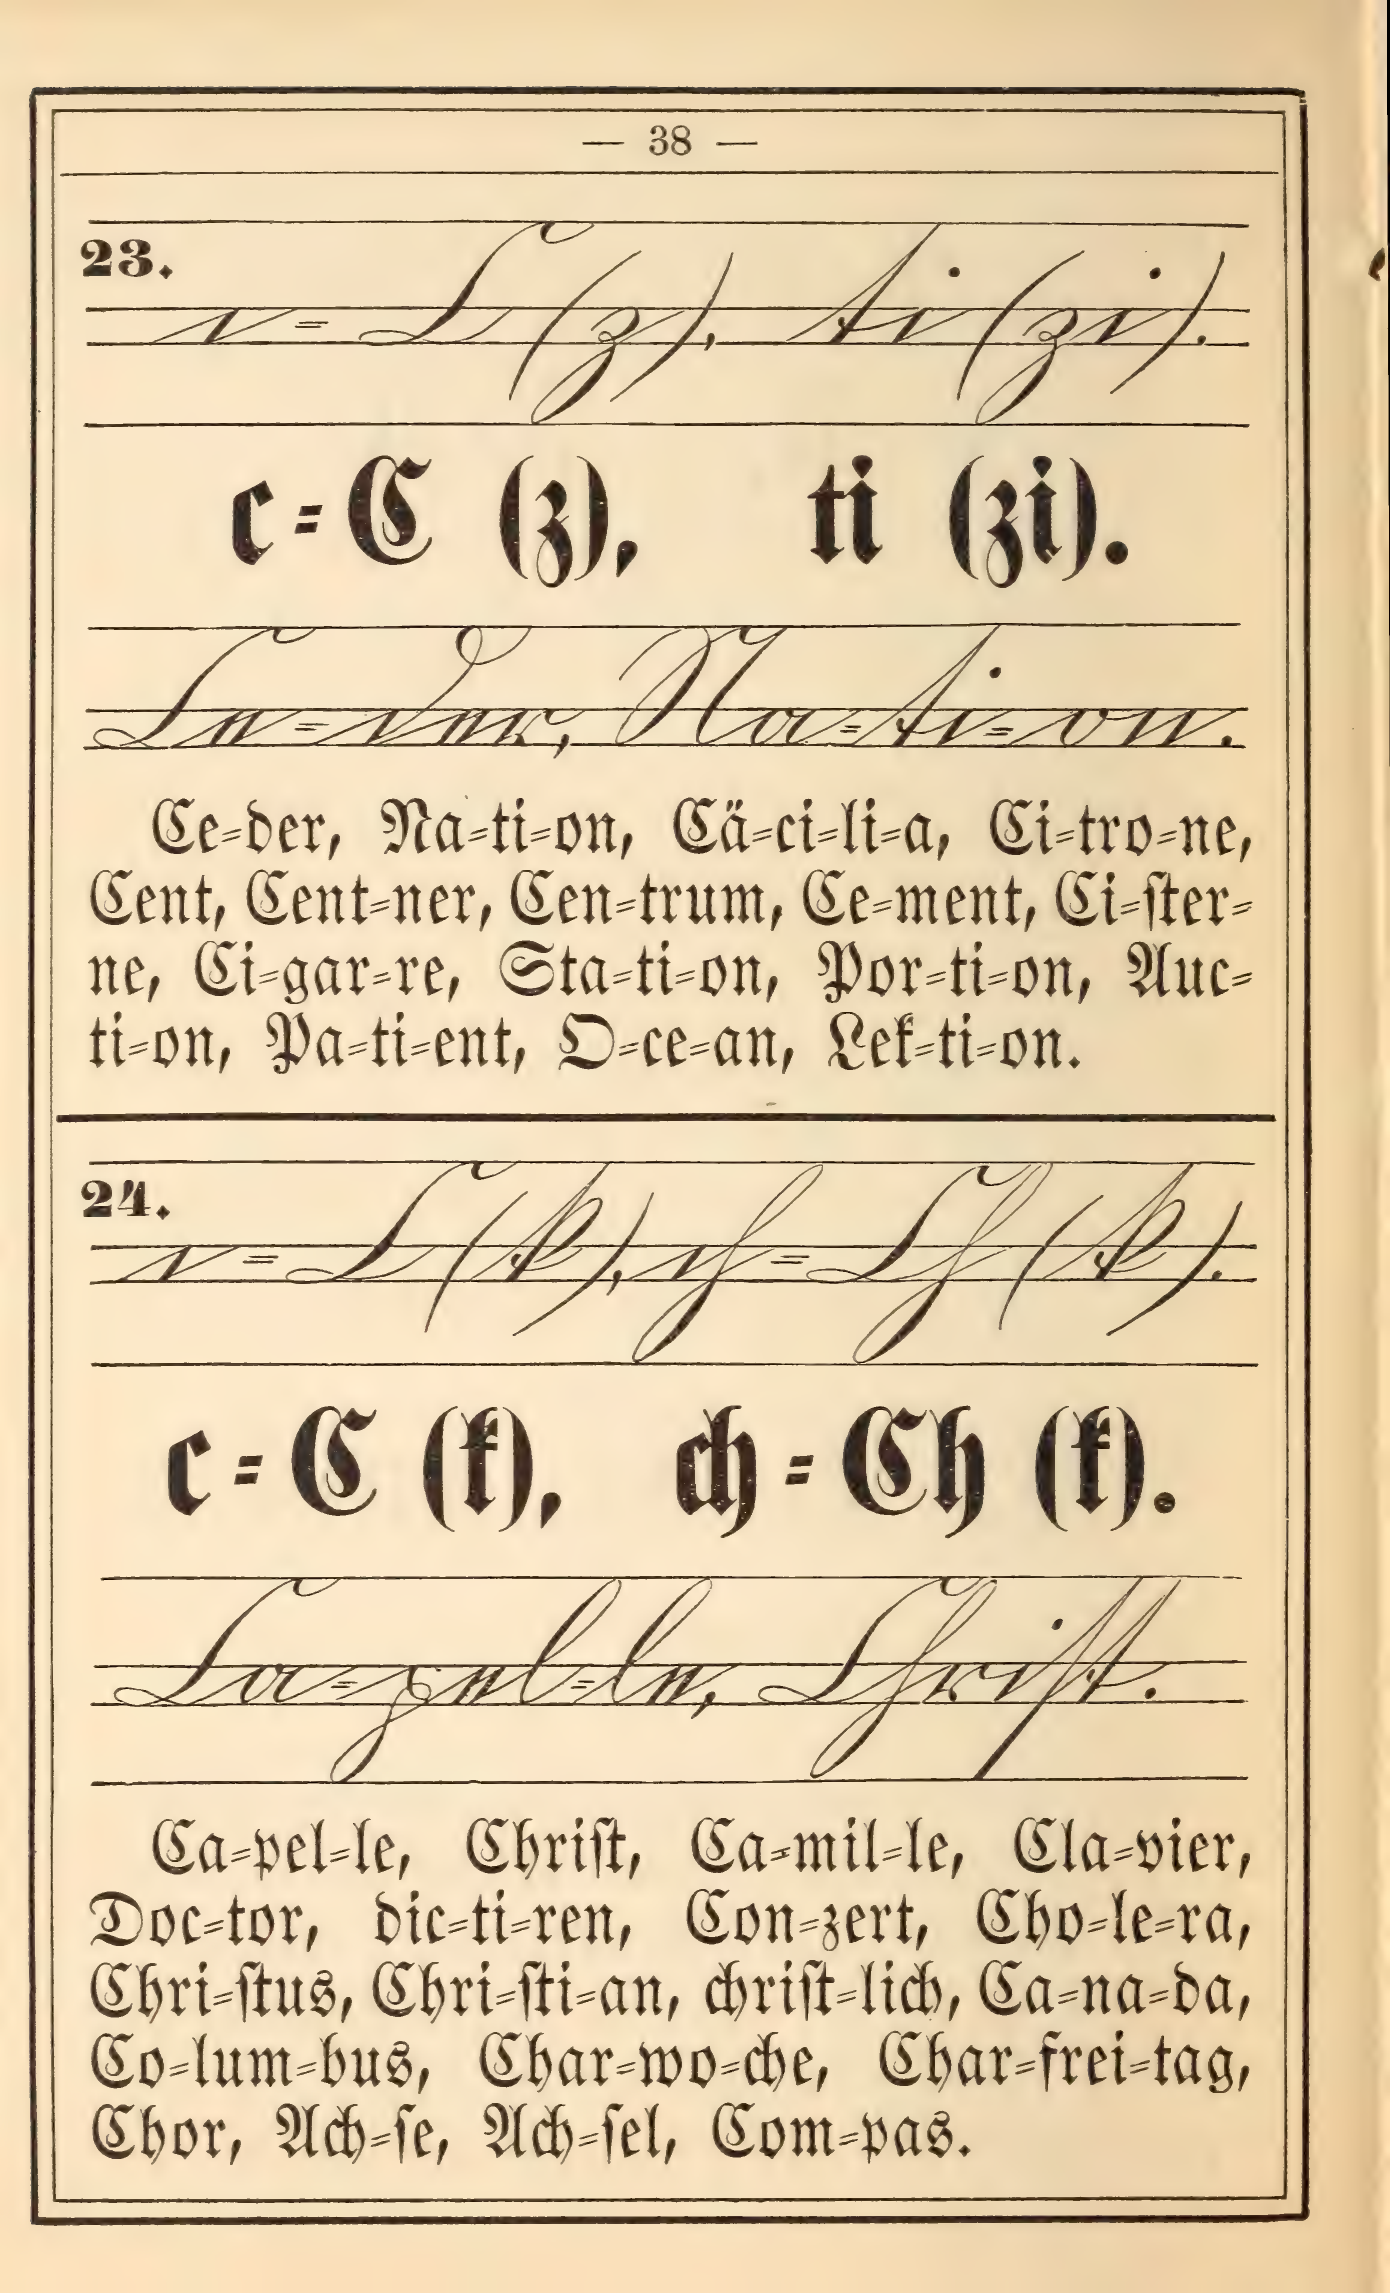 — 38 —
23.
c = C (z), ti (zi).
c = C (z), ti (zi).
Ce=der, Na=ti=on.
Ce=der, Na=ti=on, Cä=ci=li=a, Ci=tro=ne,
Cent, Cent=ner, Cen=trum, Ce=ment, Ci=ſter=
ne, Ci=gar=re, Sta=ti=on, Por=ti=on, Auc=
ti=on, Pa=ti=ent, O=ce=an, Lek=ti=on.
24.
c = C (k), ch = Ch (k).
c = C (k), ch = Ch (k).
Ca=pel=le, Chriſt.
Ca=pel=le, Chriſt, Ca=mil=le, Cla=vier,
Doc=tor, dic=ti=ren, Con=zert, Cho=le=ra,
Chri=ſtus, Chri=ſti=an, chriſt=lich, Ca=na=da,
Co=lum=bus, Char=wo=che, Char=frei=tag,
Chor, Ach=ſe, Ach=ſel, Com=pas.